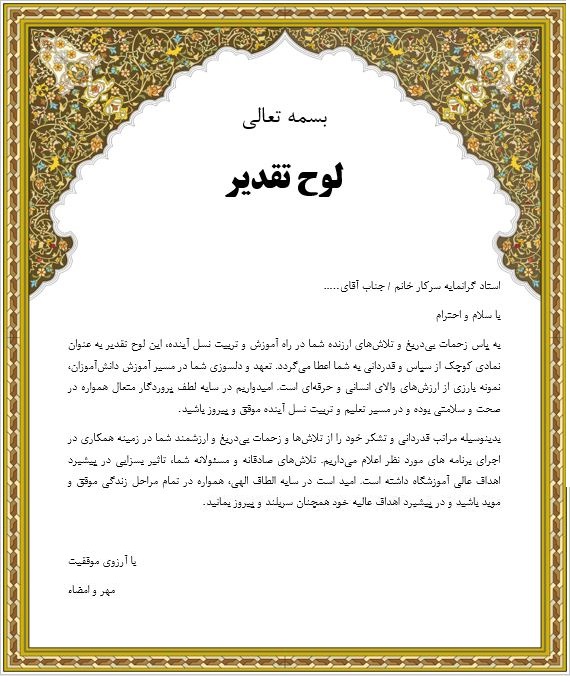 بسمه تعالی
لوح تقدیر
استاد گرانمایه سرکار خانم / جناب آقای.....
با سلام و احترام
به پاس زحمات بی‌دریغ و تلاش‌های ارزنده شما در راه آموزش و تربیت نسل آینده، این لوح تقدیر به عنوان
نمادی کوچک از سپاس و قدردانی به شما اعطا می‌گردد. تعهد و دلسوزی شما در مسیر آموزش دانش‌آموزان،
نمونه بارزی از ارزش‌های والای انسانی و حرفه‌ای است. امیدواریم در سایه لطف پروردگار متعال همواره در
صحت و سلامتی بوده و در مسیر تعلیم و تربیت نسل آینده موفق و پیروز باشید.
بدینوسیله مراتب قدردانی و تشکر خود را از تلاش‌ها و زحمات بی‌دریغ و ارزشمند شما در زمینه همکاری در
اجرای برنامه های مورد نظر اعلام می‌داریم. تلاش‌های صادقانه و مسئولانه شما، تاثیر بسزایی در پیشبرد
اهداف عالی آموزشگاه داشته است. امید است در سایه الطاف الهی، همواره در تمام مراحل زندگی موفق و
موید باشید و در پیشبرد اهداف عالیه خود همچنان سربلند و پیروز بمانید.
با آرزوی موفقیت
مهر و امضاء